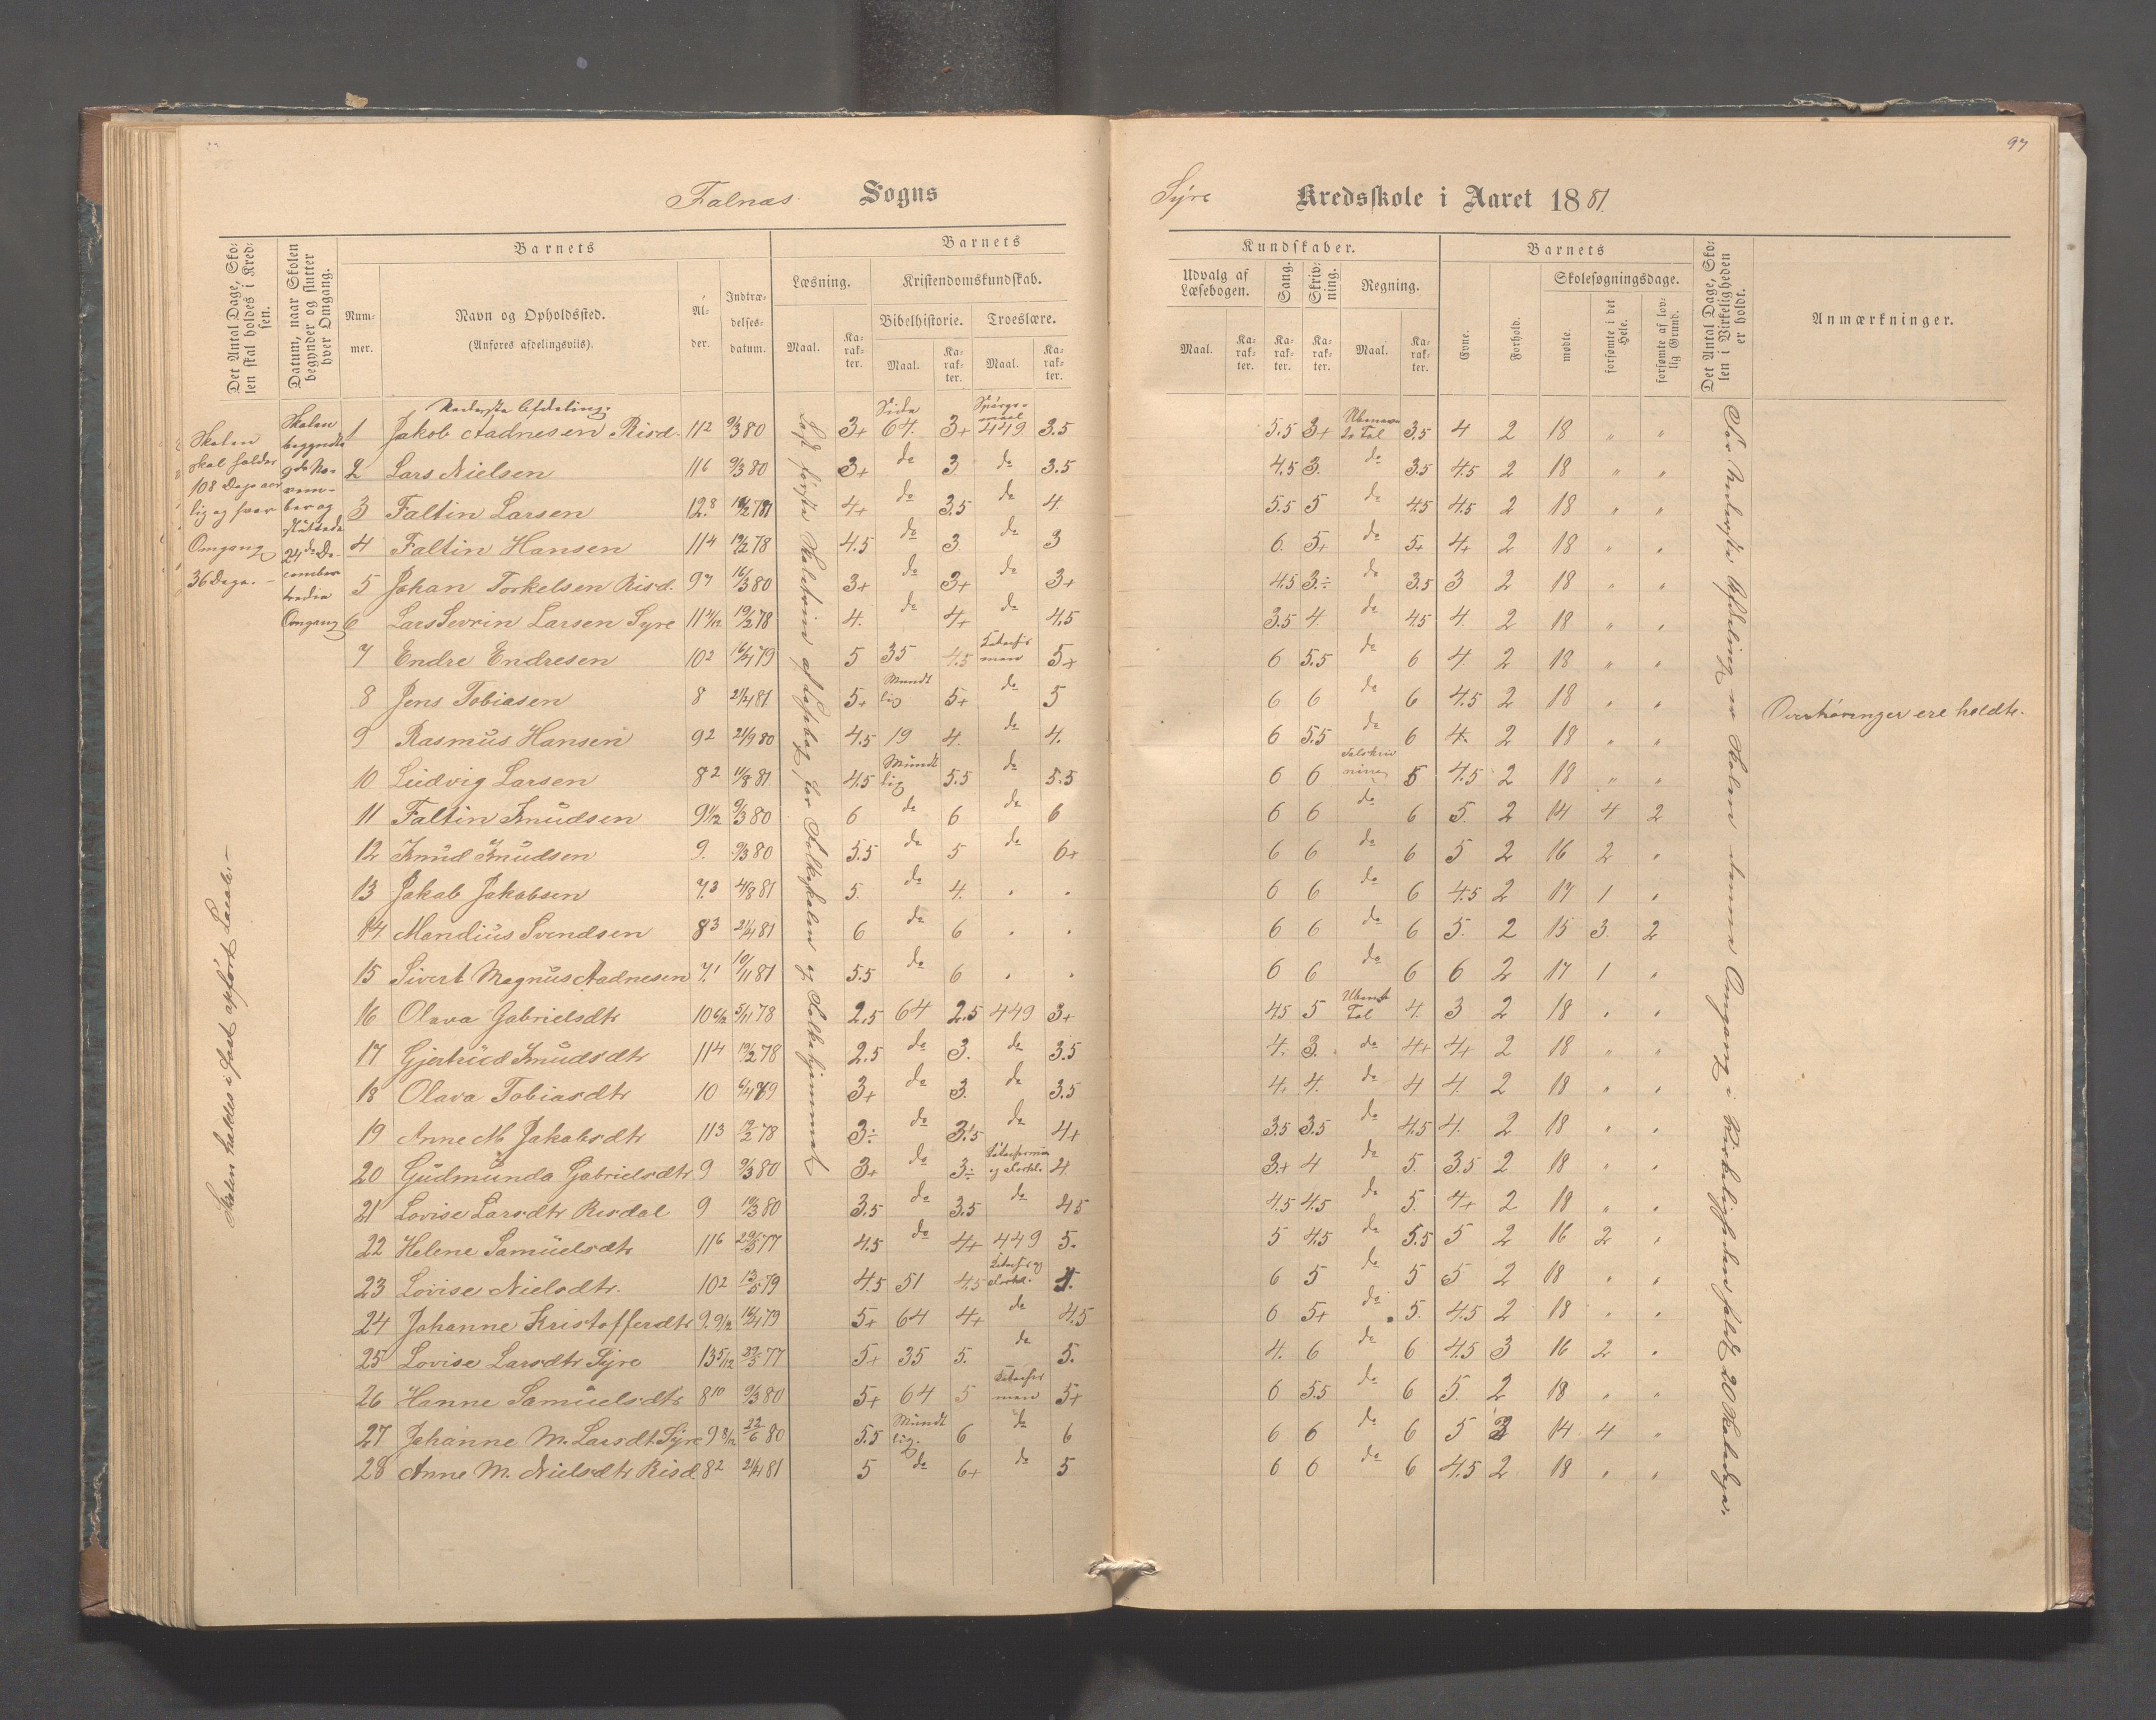 97
Falnæs Sogns
Syre Kredsskole i Aaret 1881.
Det Antal Dage, Skolen skal holdes i Kredsen.
Datum, naar Skolen begynder og slutter hver Omgang.
Barnets
Nummer.
Navn og Opholdssted.
(Anføres afdelingsviis).
Alder.
Indtrædelsesdatum.
Barnets
Læsning.
Kristendomskundskab.
Bibelhistorie.
Troeslære.
Maal.
Karakter.
Maal.
Karakter.
Maal.
Karakter.
Kundskaber.
Udvalg af Læsebogen.
Sang.
Skrivning.
Regning.
Maal.
Karakter.
Karakter.
Karakter.
Maal.
Karakter.
Barnets
Evne.
Forhold.
Skolesøgningsdage.
mødte.
forsømte i det Hele.
forsømte af lovlig Grund.
Det Antal Dage, Skolen i Virkeligheden er holdt.
Anmærkninger.
Skolen
skal holdes
108 Dage aar-
lig og hver
Omgang
36 Dage. –
Skolen
begyndte
9de No-
vem-
ber og
sluttede
24de De-
cember
tredie
Omgang
Skolen holdes i fast opført Locale. –
Nederste Afdeling.
1 Jakob Aadnesen Risd. 11 2 9/3 80 3+ Side 64. 3+ Spørgsmaal 449 3.5 5.5 3+ 3.5 4 2 18 " "
2 Lars Nielsen 11 6 9/3 80 3+ do 3 do 3.5 4.5 3. do 3.5 4.5 2 18 " "
3 Faltin Larsen 12.8 4+ do 3.5 do 4. 5.5 5 do 4.5 4.5 2 18 " "
4 Faltin Hansen 11 4 19/2 78 4.5 do 3 do 3 6. 5+ do 5+ 4+ 2 18 " "
5 Johan Torkelsen Risd. 9 7 16/3 80 3+ do 3+ do 3+ 4.5 3÷ do 3.5 3 2 18 " "
6 Lars Sevrin Larsen Syre 11 4/12 19/2 78 4. do 4+ do 4.5 3.5 4. do 4.5 4. 2 18 " "
7 Endre Endresen 10 2 16/4 79 5 35 4.5 5+ 6 5.5 do 6 4. 2 18 " "
8 Jens Tobiasen 8 21/4 81 5+ Mundtlig 5+ do 5 6 6 do 6 4.5 2 18 " "
9 Rasmus Hansen 9 2 21/9 80 4.5 19 4. do 4. 6 5.5 do 6 4. 2 18 " "
10 Ludvig Larsen 8 2 11/8 81 4.5 Mundtlig 5.5 do 5.5 6 6 Talskrivning 5 4.5 2 18 " "
11 Faltin Knudsen 9 1/2 9/3 80 6 do 6 do 6 6 6 do 6 5. 2 14 4 2
12 Knud Knudsen 9. 9/3 80 5.5 do 5 do 6+ 6 6 do 6 5 2 16 2 "
13 Jakob Jakobsen 7.3 4/8 81 5. do 4. " " 6 6 do 6 4.5 2 17 1 "
14. Mandius Svendsen 8 3 21/4 81 6 do 6 " " 6 6 do 6 5. 2 15 3. 2
15 Sivert Magnus Aadnesen 7.1 10/11 81 5.5 do 6 " " 6 6 do 6 6 2 17 1 "
16 Olava Gabrielsdtr 10 6/12 5/11 78 2.5 64 2.5 449 3+ 4.5 5 Ubenævnt Tal 4. 3 2 18 " "
17 Gjertrud Knudsdtr 11 4 19/2 78 2.5 do 3. do 3.5 4. 3. do 4+ 4+ 2 18 " "
18 Olava Tobiasdtr 10 3+ do 3. do 3.5 4. 4. do 4 4. 2 18 " "
19 Anne M. Jakobsdtr 11 3 19/2 78 3÷ do 3.5 do 4+ 3.5 3.5 do 4.5 4. 2 18 " "
20 Gudmunda Gabrielsdtr 9 9/3 80 3+ do 3÷ 4. 3+ 4 do 5. 3.5 2 18 " "
21 Lovise Larsdtr Risdal 9 19/3 80 3.5 do 3.5 do 4.5 4.5 4.5 do 5. 4+ 2 18 " "
22 Helene Samuelsdtr 11 6 29/5 77 4.5 do 4+ 449 5. 5 4.5 do 5.5 5 2 16 2 "
23 Lovise Nielsdtr. 10 2 13/5 79 4.5 51 4.5 6 5 do 5 5 2 18 " "
24 Johanne Kristoffersdtr 9. 9/12 16/4 79 5+ 64 4+ do 4.5 6 5+ do 5. 4.5 2 18 " "
25 Lovise Larsdtr Syre 13 5/12 29/5 77 5+ 35 5. do 5. 4. 6 do 6 4.5 3 16 2 "
26 Hanne Samuelsdtr 8 10 9/3 80 5+ 64 5 5+ 6 5.5 do 6 5. 2 18 " "
27 Johanne M. Larsdt Syre 9 8/12 22/6 80 5.5 Mundtlig. 6 do 6 6 6 do 6 5 14 4 "
28 Anne M. Nielsdtr Risd 8 2 21/4 81 5 do 6+ do 5 6 6 do 6 4.5 2 18 " "
Læst første Skoletrin af Læsebog for Folkeskolen og Folkehjemmet
For Nederste Afdeling er Skolen denne Omgang i Virkeligheden holdt 20 Skoledage.
Overhøringer ere holdte.